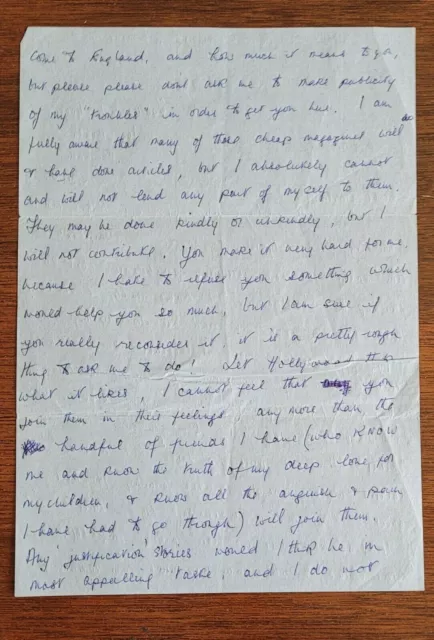 Come to England, and how much it means to you,
but please please dont ask me to make publicity
of my "troubles" in order to get you here. I am
fully aware that many of those cheap magazines will do
& have done articles, but I absolutely cannot
and will not lend any part of myself to them.
They may be done kindly or unkindly, but I
will not contribute. You make it very hard for me.
because I hate to refuse you something which
would help you so much, but I am sure if
you really reconsider it, it is a pretty rough
thing to ask me to do! Let Hollywood think
what it likes, I cannot feel that you
join them in their feelings any more than the
handful of friends I have (who KNOW
me and know the truth of my deep love for
my children, & know all the anguish & pain
I have had to go through) will join them.
Any 'justification' stories would I think be in
most appalling taste, and I do not